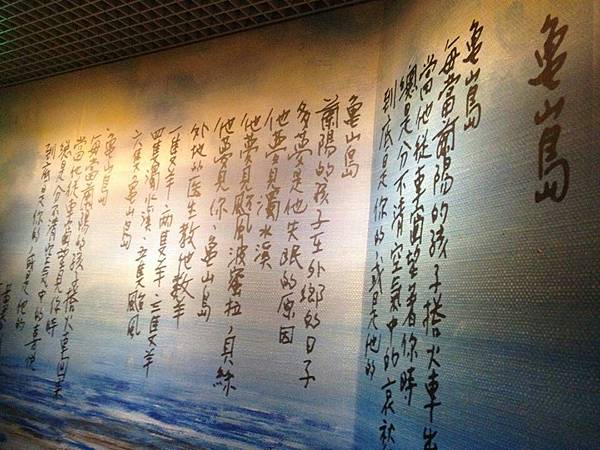 龜山島
龜山島
每當蘭陽的孩子搭火車出
當他從車窗望著你時
總是分不清空氣中的哀愁
到底是你的 或是他的
龜山島
蘭陽的孩子在外鄉的日子
多夢是他失眠的原因
他夢見濁水溪
他夢見颱風波蜜拉,貝絲
他夢見你,龜山島
外地的医生教他數羊
一隻羊,兩隻羊,三隻羊
四隻濁水溪,五隻颱風
六隻龜山島
龜山島
每當蘭陽的孩子搭火車回來
當他從車窗望見你時
總是分不清空氣中的喜悅
到底是你的 或是他的